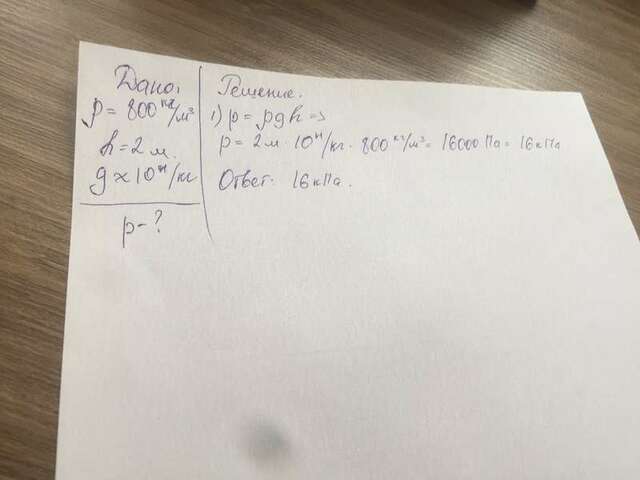 Дано:
ρ = 800 кг/м³
h = 2 м.
g ≈ 10 Н/кг
p - ?
Решение.
1) p = ρgh =>
p = 2м · 10 Н/кг · 800 кг/м³ = 16000 Па = 16 кПа
Ответ: 16 кПа.